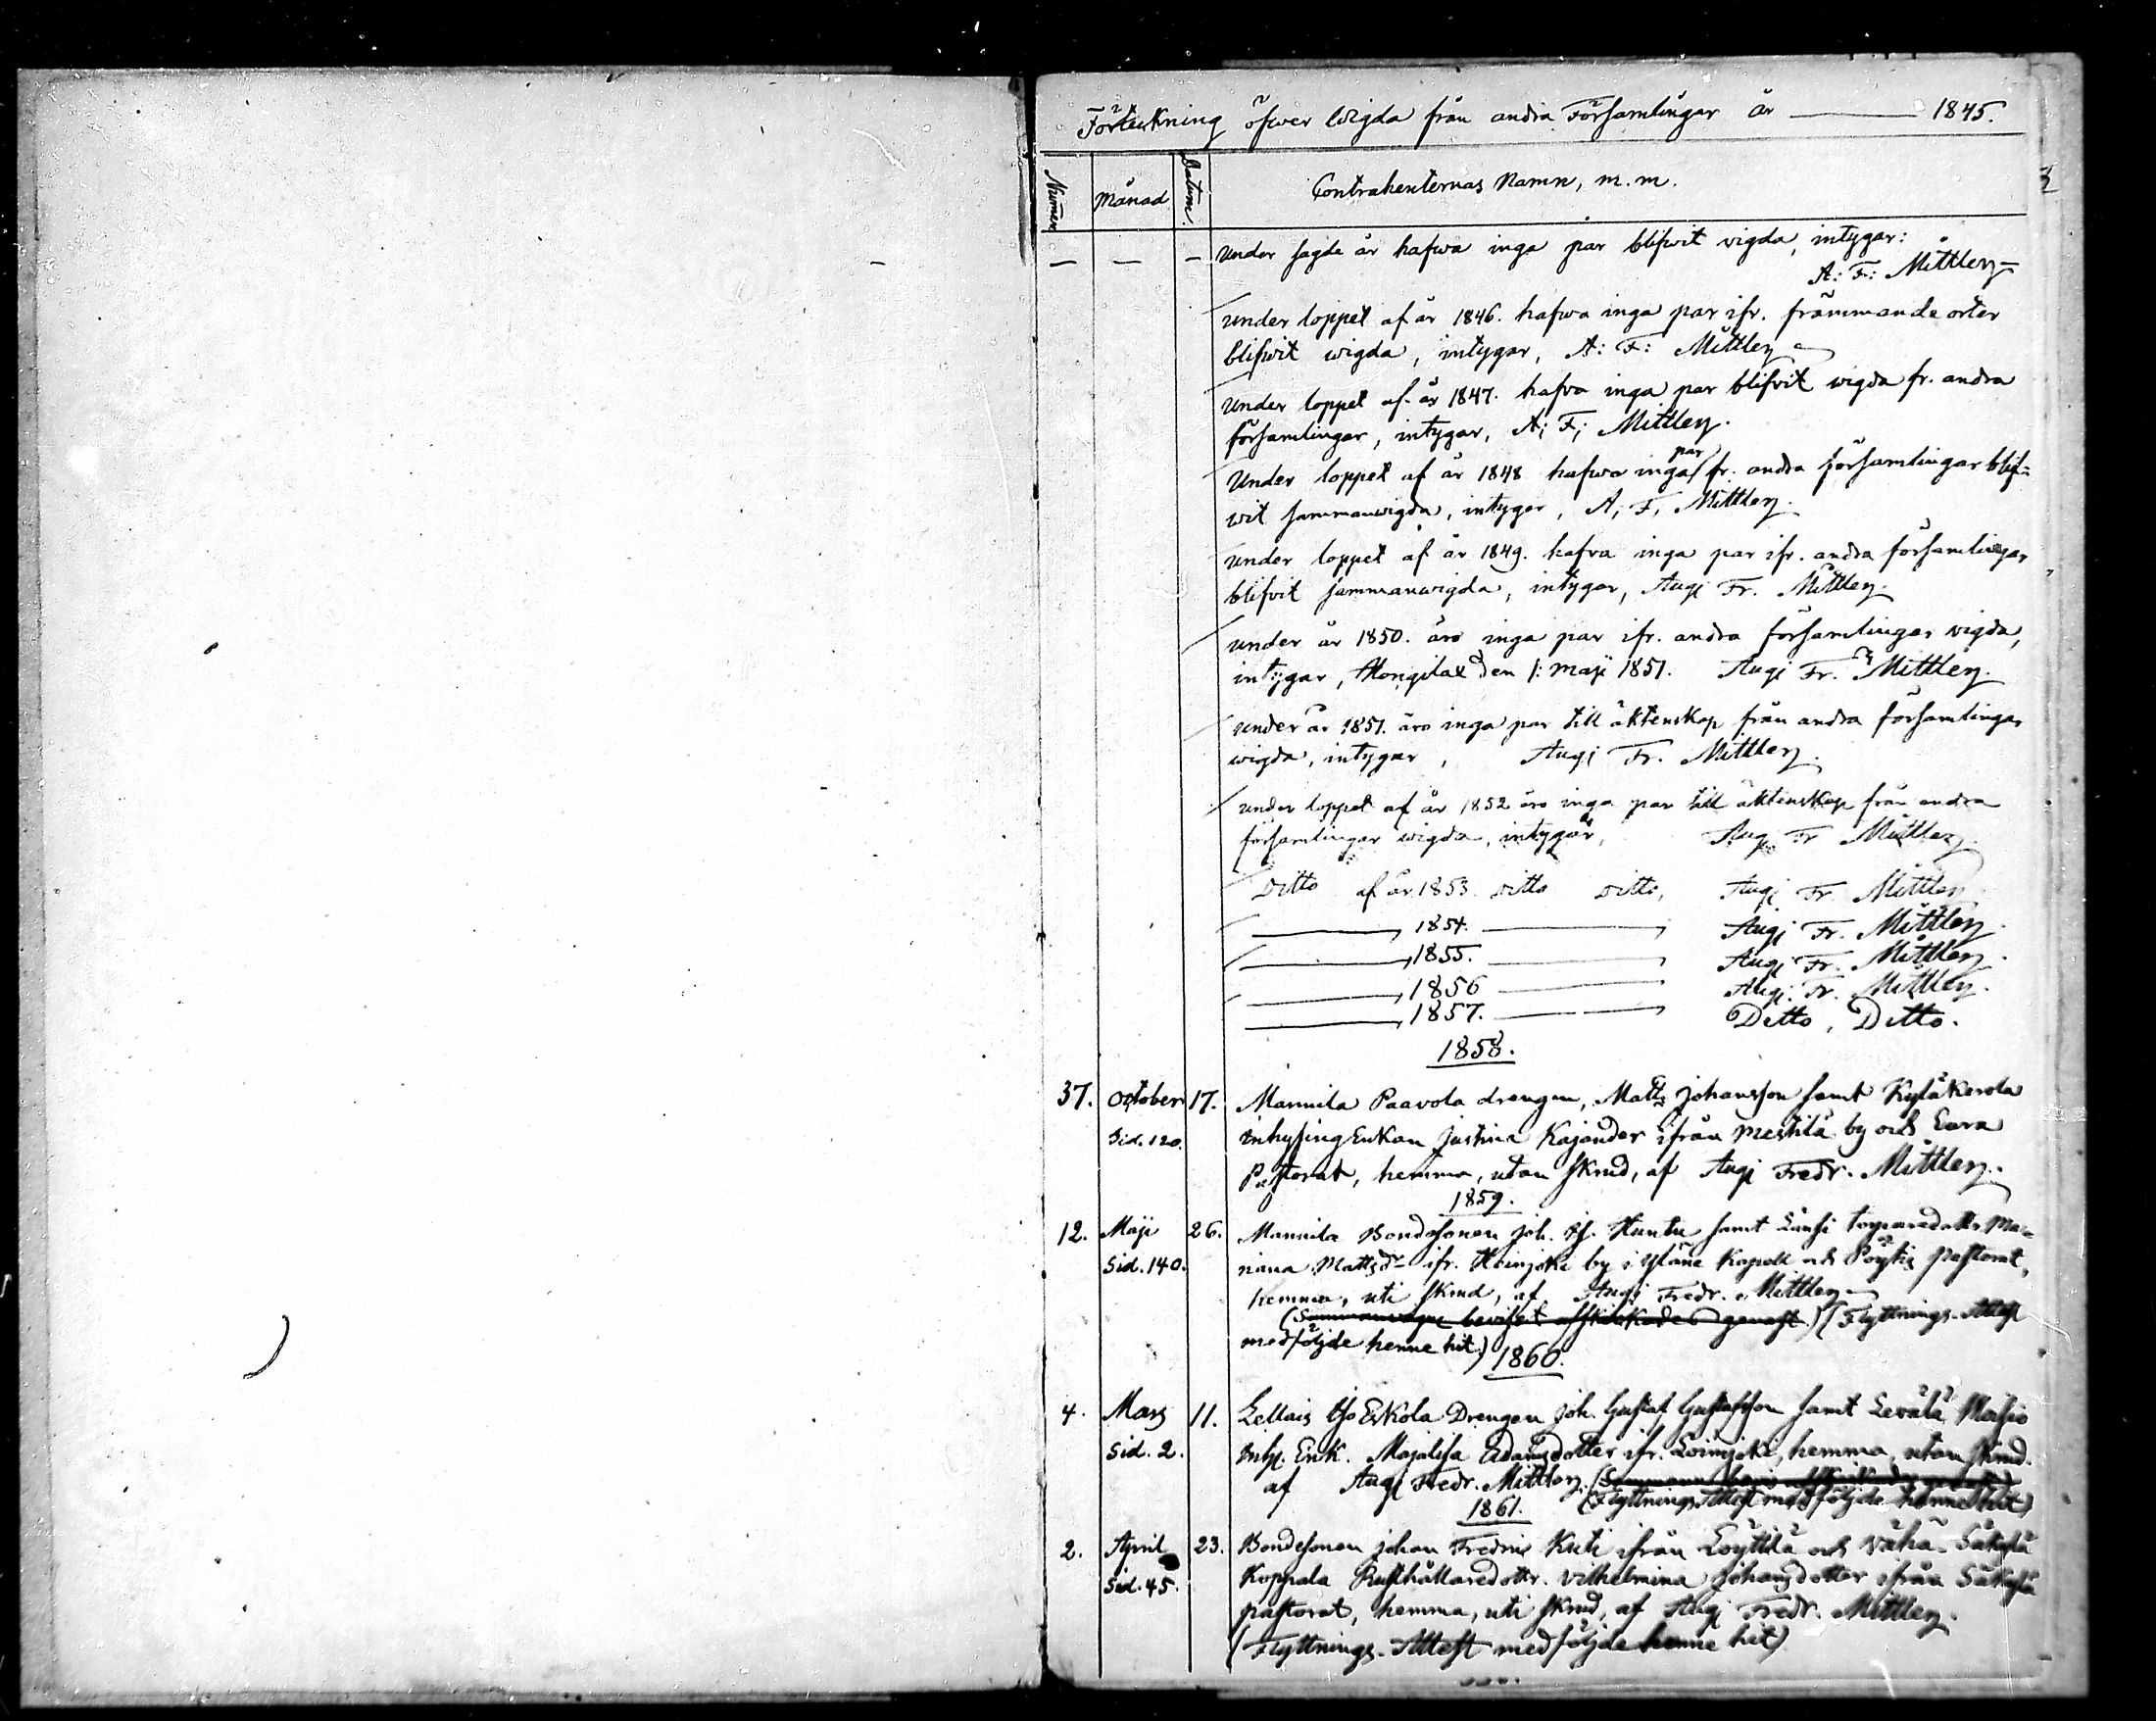 Förteckning öfwer Wigda från andra Församlingar år ——— 1845.
Numer Månad Datum. Contrahenternas Namn, m.m.
— — — under sagde år hafwa inga par blifwit vigda, intygar:
A: F: Mittler
under loppet af år 1846. hafwa inga par ifr. främmande orter
blifwit wigda, intygar, A: F: Mittler
under loppet af år 1847. hafva inga par blifvit wigda fr. andra
församlingar, intygar, A; F; Mittler.
Under loppet af år 1848 hafwa inga par fr. andra församlingar blif=
wit sammanwigda, intygar, A; F; Mittler.
under loppet af år 1849. hafva inga par ifr. andra församlingar
blifvit sammanwigda, intygar, Aug; Fr. Mittler.
under år 1850. äro inga par ifr. andra församlingar wigda,
intygar, Hongilax den 1: maji 1851. Aug; Fr. Mittler.
under år 1851. äro inga par till äktenskap från andra församlingar
wigda, intygar, Aug; Fr. Mittler.
under loppet af år 1852 äro inga par till äktenskap från andra
församlingar wigda, intygar, Aug; Fr Mittler.
Ditto af år 1853. ditto ditto, Aug; Fr. Mittler
———, 1854. ———, Aug; Fr. Mittler.
———, 1855. ———, Aug; Fr. Mittler.
———, 1856 ———, Aug; Fr. Mittler.
———, 1857. ———, Ditto, Ditto.
1858.
37. October 17. Mannila Paavola drengen, Matts Johansson samt Kyläkerola
Sid. 120. Inhysing Enkan Justina Kajander ifrån Mestilä by och Eura
Pastorat, hemma, utan skrud, af Aug; Fredr. Mittler.
1859.
12. Maji 26. Mannila Bondesonen Joh. Huntu samt Länsi torparedottr Ma=
Sid. 140. riana Mattsdr ifr. Heinjoki by i Yläne Kapell och Pöytis pastorat,
hemma, uti skrud, af Aug; Fredr. Mittler
(Flyttnings-Attest
medföljde henne hit.) 1860.
4. Mars 11. Lellais Yso Eskola Drengen Joh. Gustaf Gustafsson samt
Sid. 2. Inh. Enk. Majalisa Adamsdotter ifr. hemma, utan skrud.
af Aug; Fredr. Mittler.
1861. (Flyttnings Attest medföljde henne hit)
2. April 23. Bondesonen Johan Fredric Kuti ifrån Löyttilä och Vähä-Säkylä
Sid. 45. Koppala Rusthållaredottr. Vilhelmina Johansdotter ifrån Säkylä
pastorat, hemma, uti skrud, af Aug; Fredr. Mittler.
(Flyttnings-Attest medföljde henne hit)